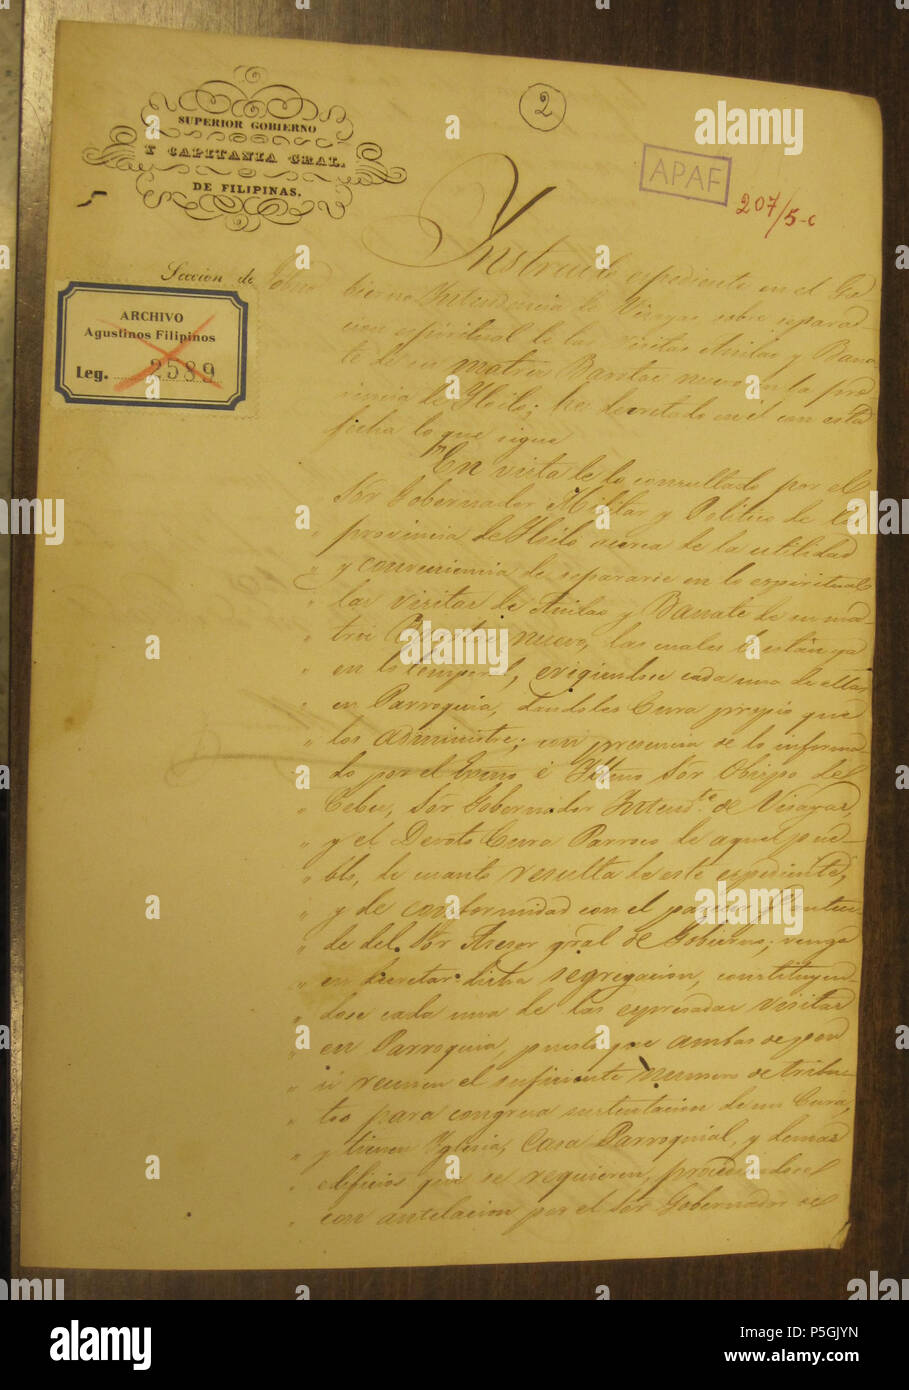 SUPERIOR GOBIERNO
Y CAPITANIA GRAL.
DE FILIPINAS.
2
APAF
207/5-c
Seccion de Gobno
ARCHIVO
Agustinos Filipinos
Leg. 2589
Instruido espediente en el Go-
bierno Intendencia de Visayas sobre separa-
cion espiritual de las visitas Anilao y Bana-
te de su matriz Barotac nuevo en la pro-
vincia de Yloilo; he decretado en él con esta
fecha lo que sigue
"En vista de lo consultado por el
Sor Gobernador Militar y Politico de la
" provincia de Yloilo acerca de la utilidad
" y conveniencia de separarse en lo espiritual
" las visitas de Anilao y Banate de su ma-
" triz Barotac nuevo, las cuales lo están ya
" en lo temporal, erigiendose cada una de ellas
" en Parroquia, dandoles Cura propio que
" los administre; con presencia de lo informa-
" do por el Excmo é Yltmo Sor Obispo de
" Cebu, Sor Gobernador Intendte de Visayas,
" y el Devoto Cura Parroco de aquel pue-
" blo, de cuanto resulta de este espediente,
" y de conformidad con el parecer
" del Sor Asesor gral de Gobierno; vengo
" en decretar dicha segregacion, constituyen-
" dose cada una de las espresadas visitas
" en Parroquia, puesto que ambas de por
" si reunen el suficiente numero de tribu-
" tos para congrua sustentacion de un Cura,
" y tienen Yglesia, Casa Parroquial, y demas
" edificios que se requieren, procediendose
" con antelacion por el Sor Gobernador de
alamy
Image ID: P5GJYN
www.alamy.com